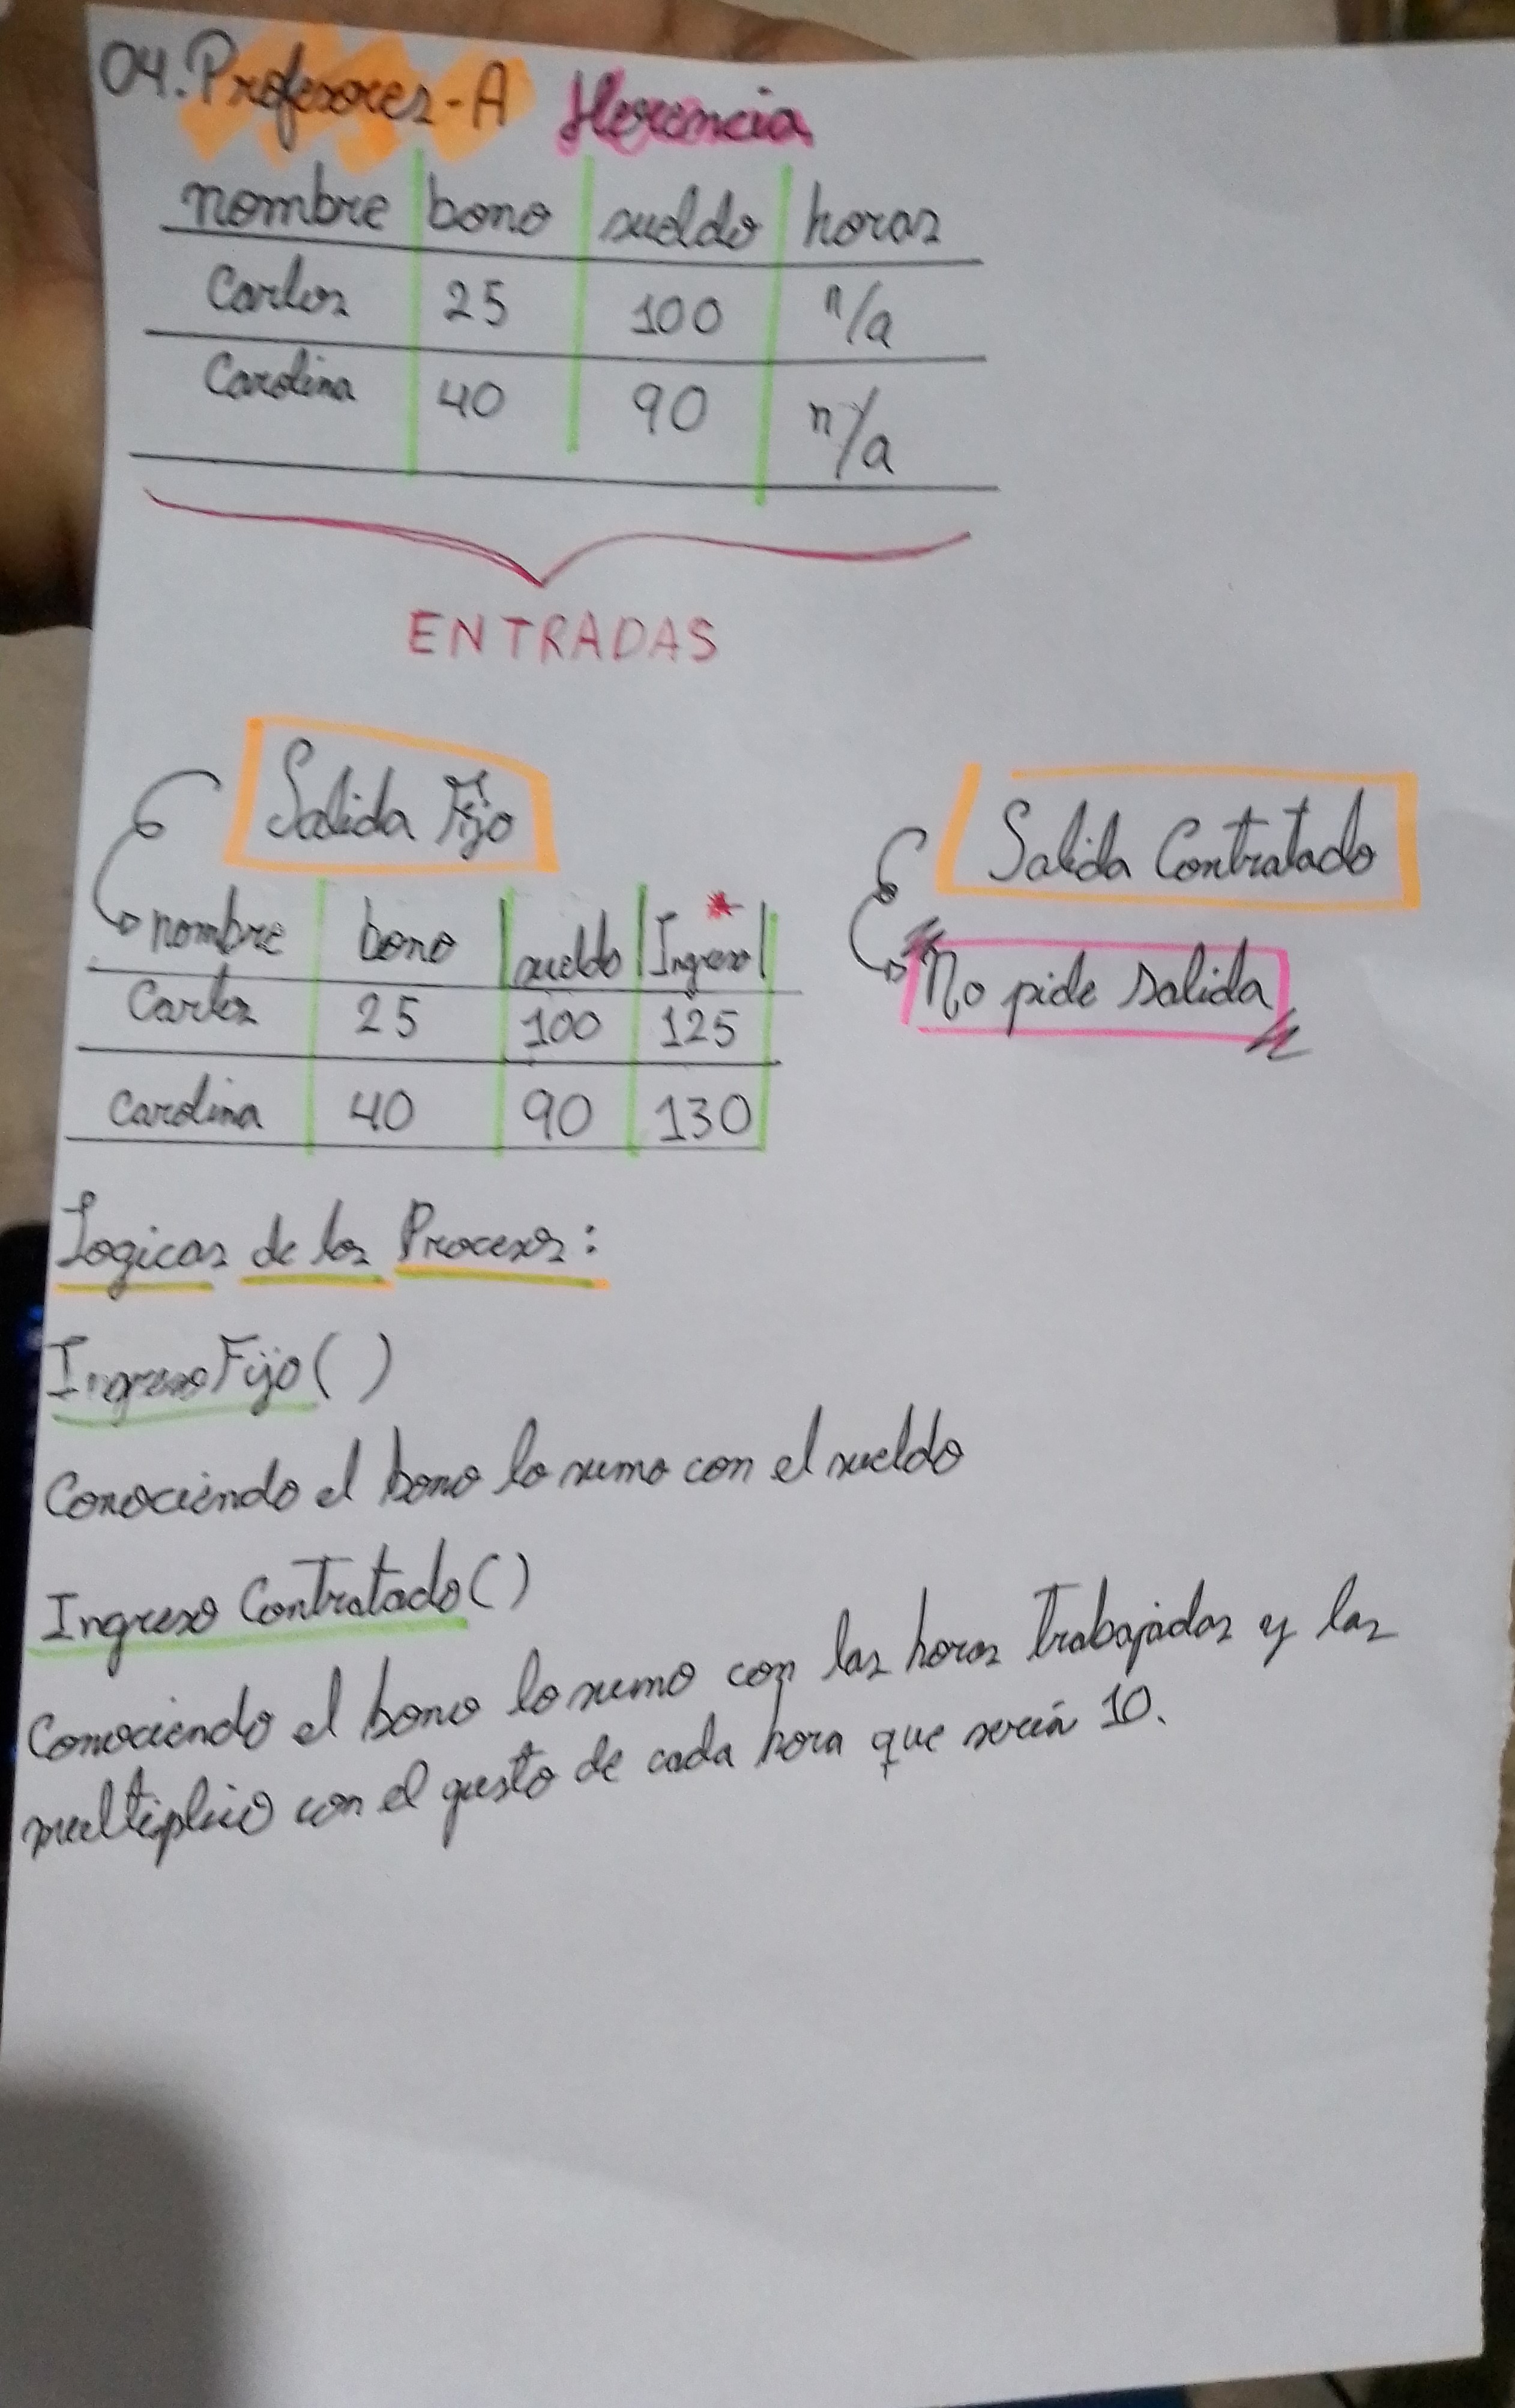 04. Profesores-A Herencia
nombre bono sueldo horas
Carlos 25 100 n/a
Carolina 40 90 n/a
ENTRADAS
Salida Fijo
Salida Contratado
nombre bono sueldo Ingreso *
"No pide salida"
Carlos 25 100 125
Carolina 40 90 130
Logicas de los Procesos:
IngresoFijo()
Conociendo el bono lo sumo con el sueldo
Ingreso Contratado()
Conociendo el bono lo sumo con las horas trabajadas y las
multiplico con el gusto de cada hora que seria 10.